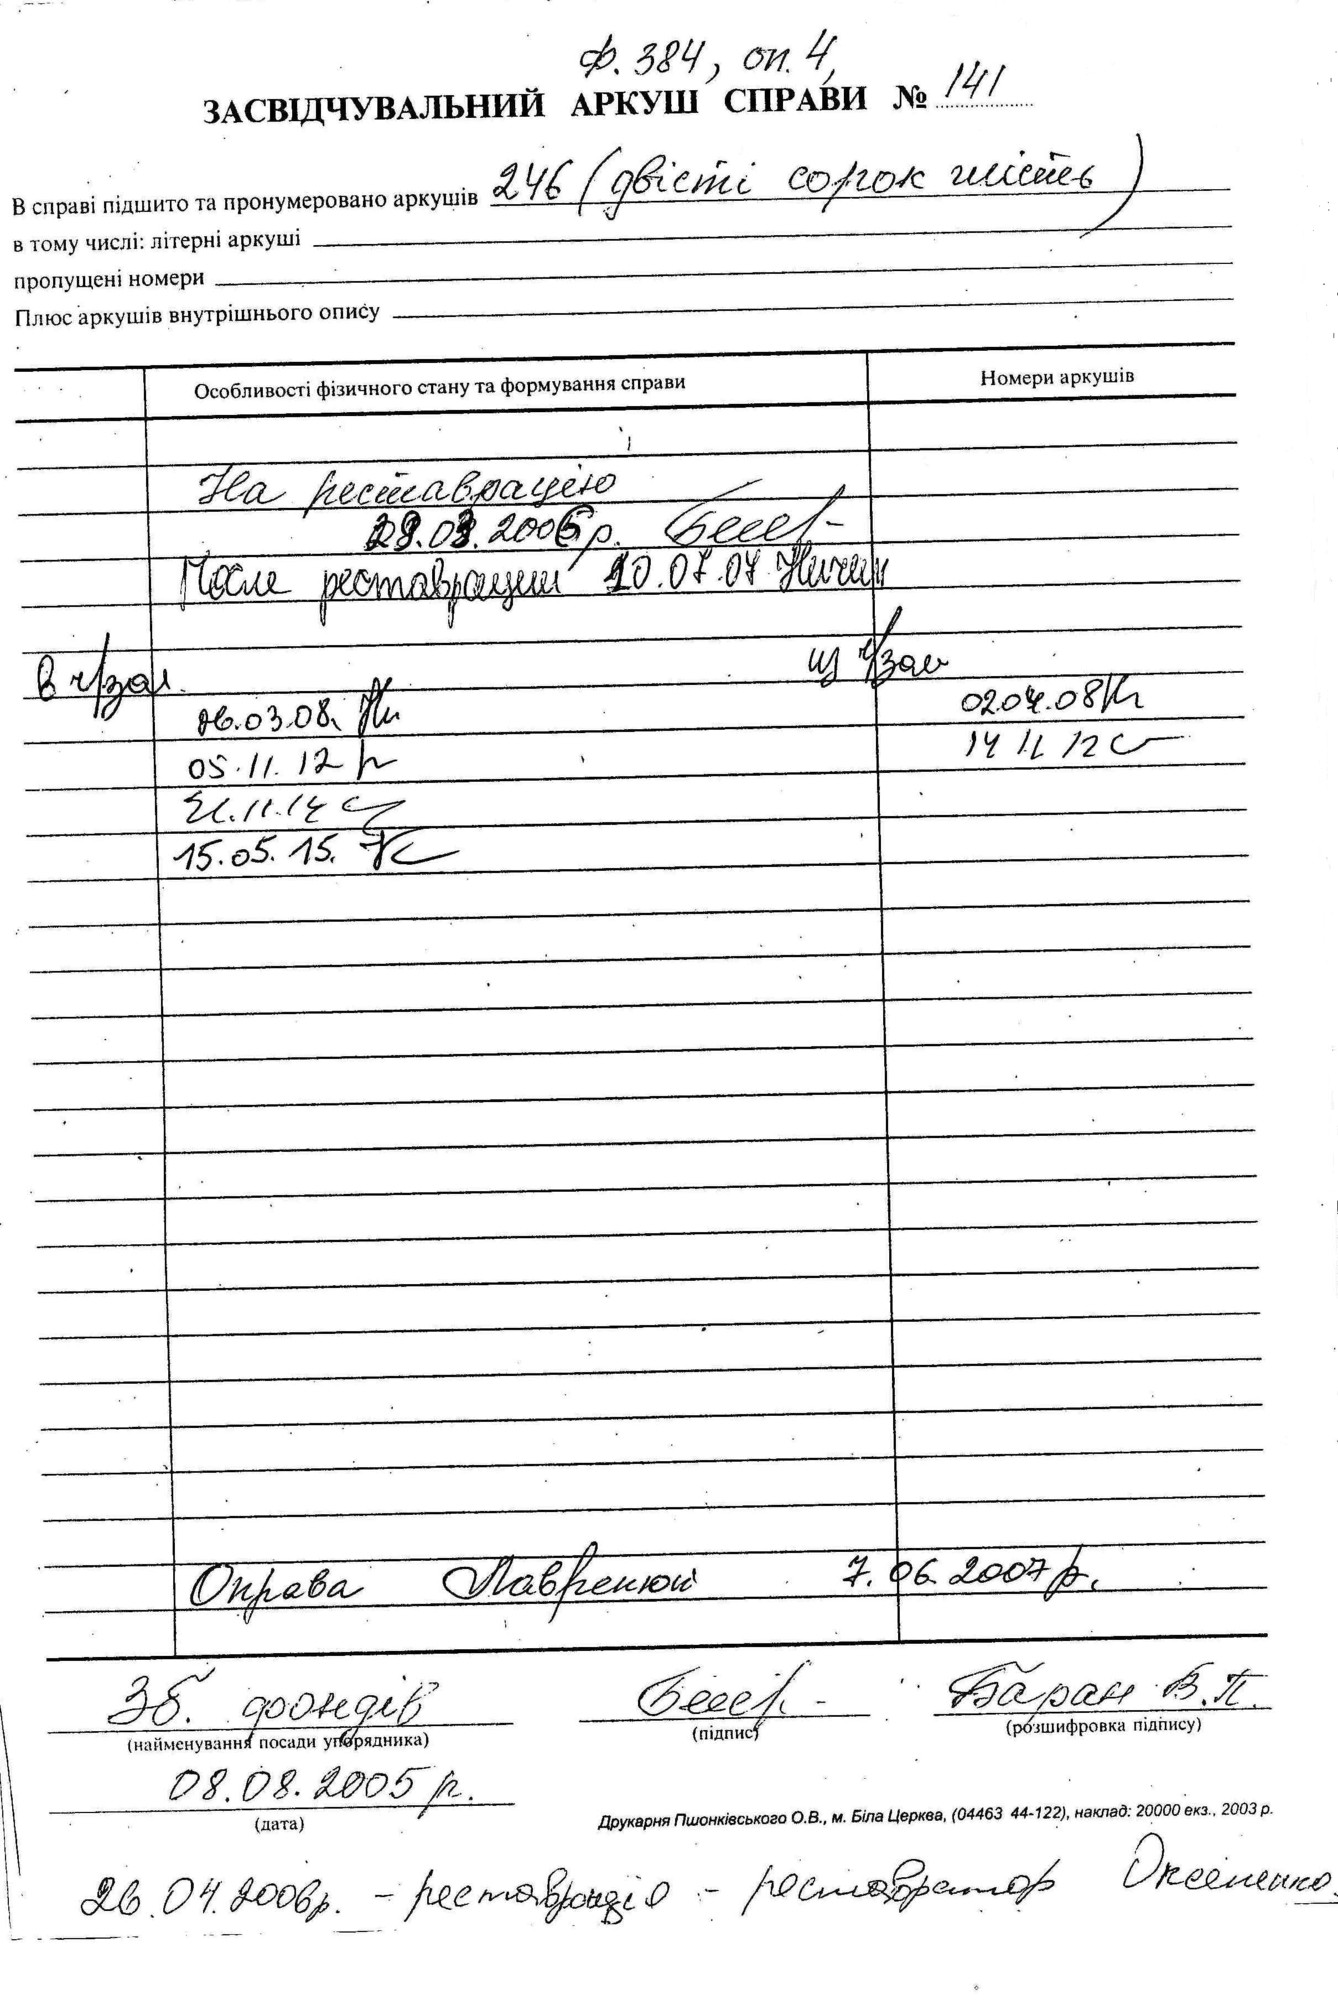 Ф. 384, оп. 4,
ЗАСВІДЧУВАЛЬНИЙ АРКУШ СПРАВИ № 141
В справі підшито та пронумеровано аркушів 246 (двісті сорок шість)
в тому числі: літерні аркуші
пропущені номери
Плюс аркушів внутрішнього опису
Особливості фізичного стану та формування справи Номери аркушів
На реставрацію
.2006 р.
После реставрации 10.07.07
В ч/зал из ч/зал
06.03.08. 02.04.08
05.11.12 14.11.12
21.11.14
15.05.15.
Оправа 7.06.2007 р.
Зб. фондів Баран В.П.
(найменування посади упорядника) (підпис) (розшифровка підпису)
08.08.2005 р.
(дата)
Друкарня Пшонківського О.В., м. Біла Церква, (04463 44-122), наклад: 20000 екз., 2003 р.
26.04.2006р. - реставрація - реставратор Оксененко.